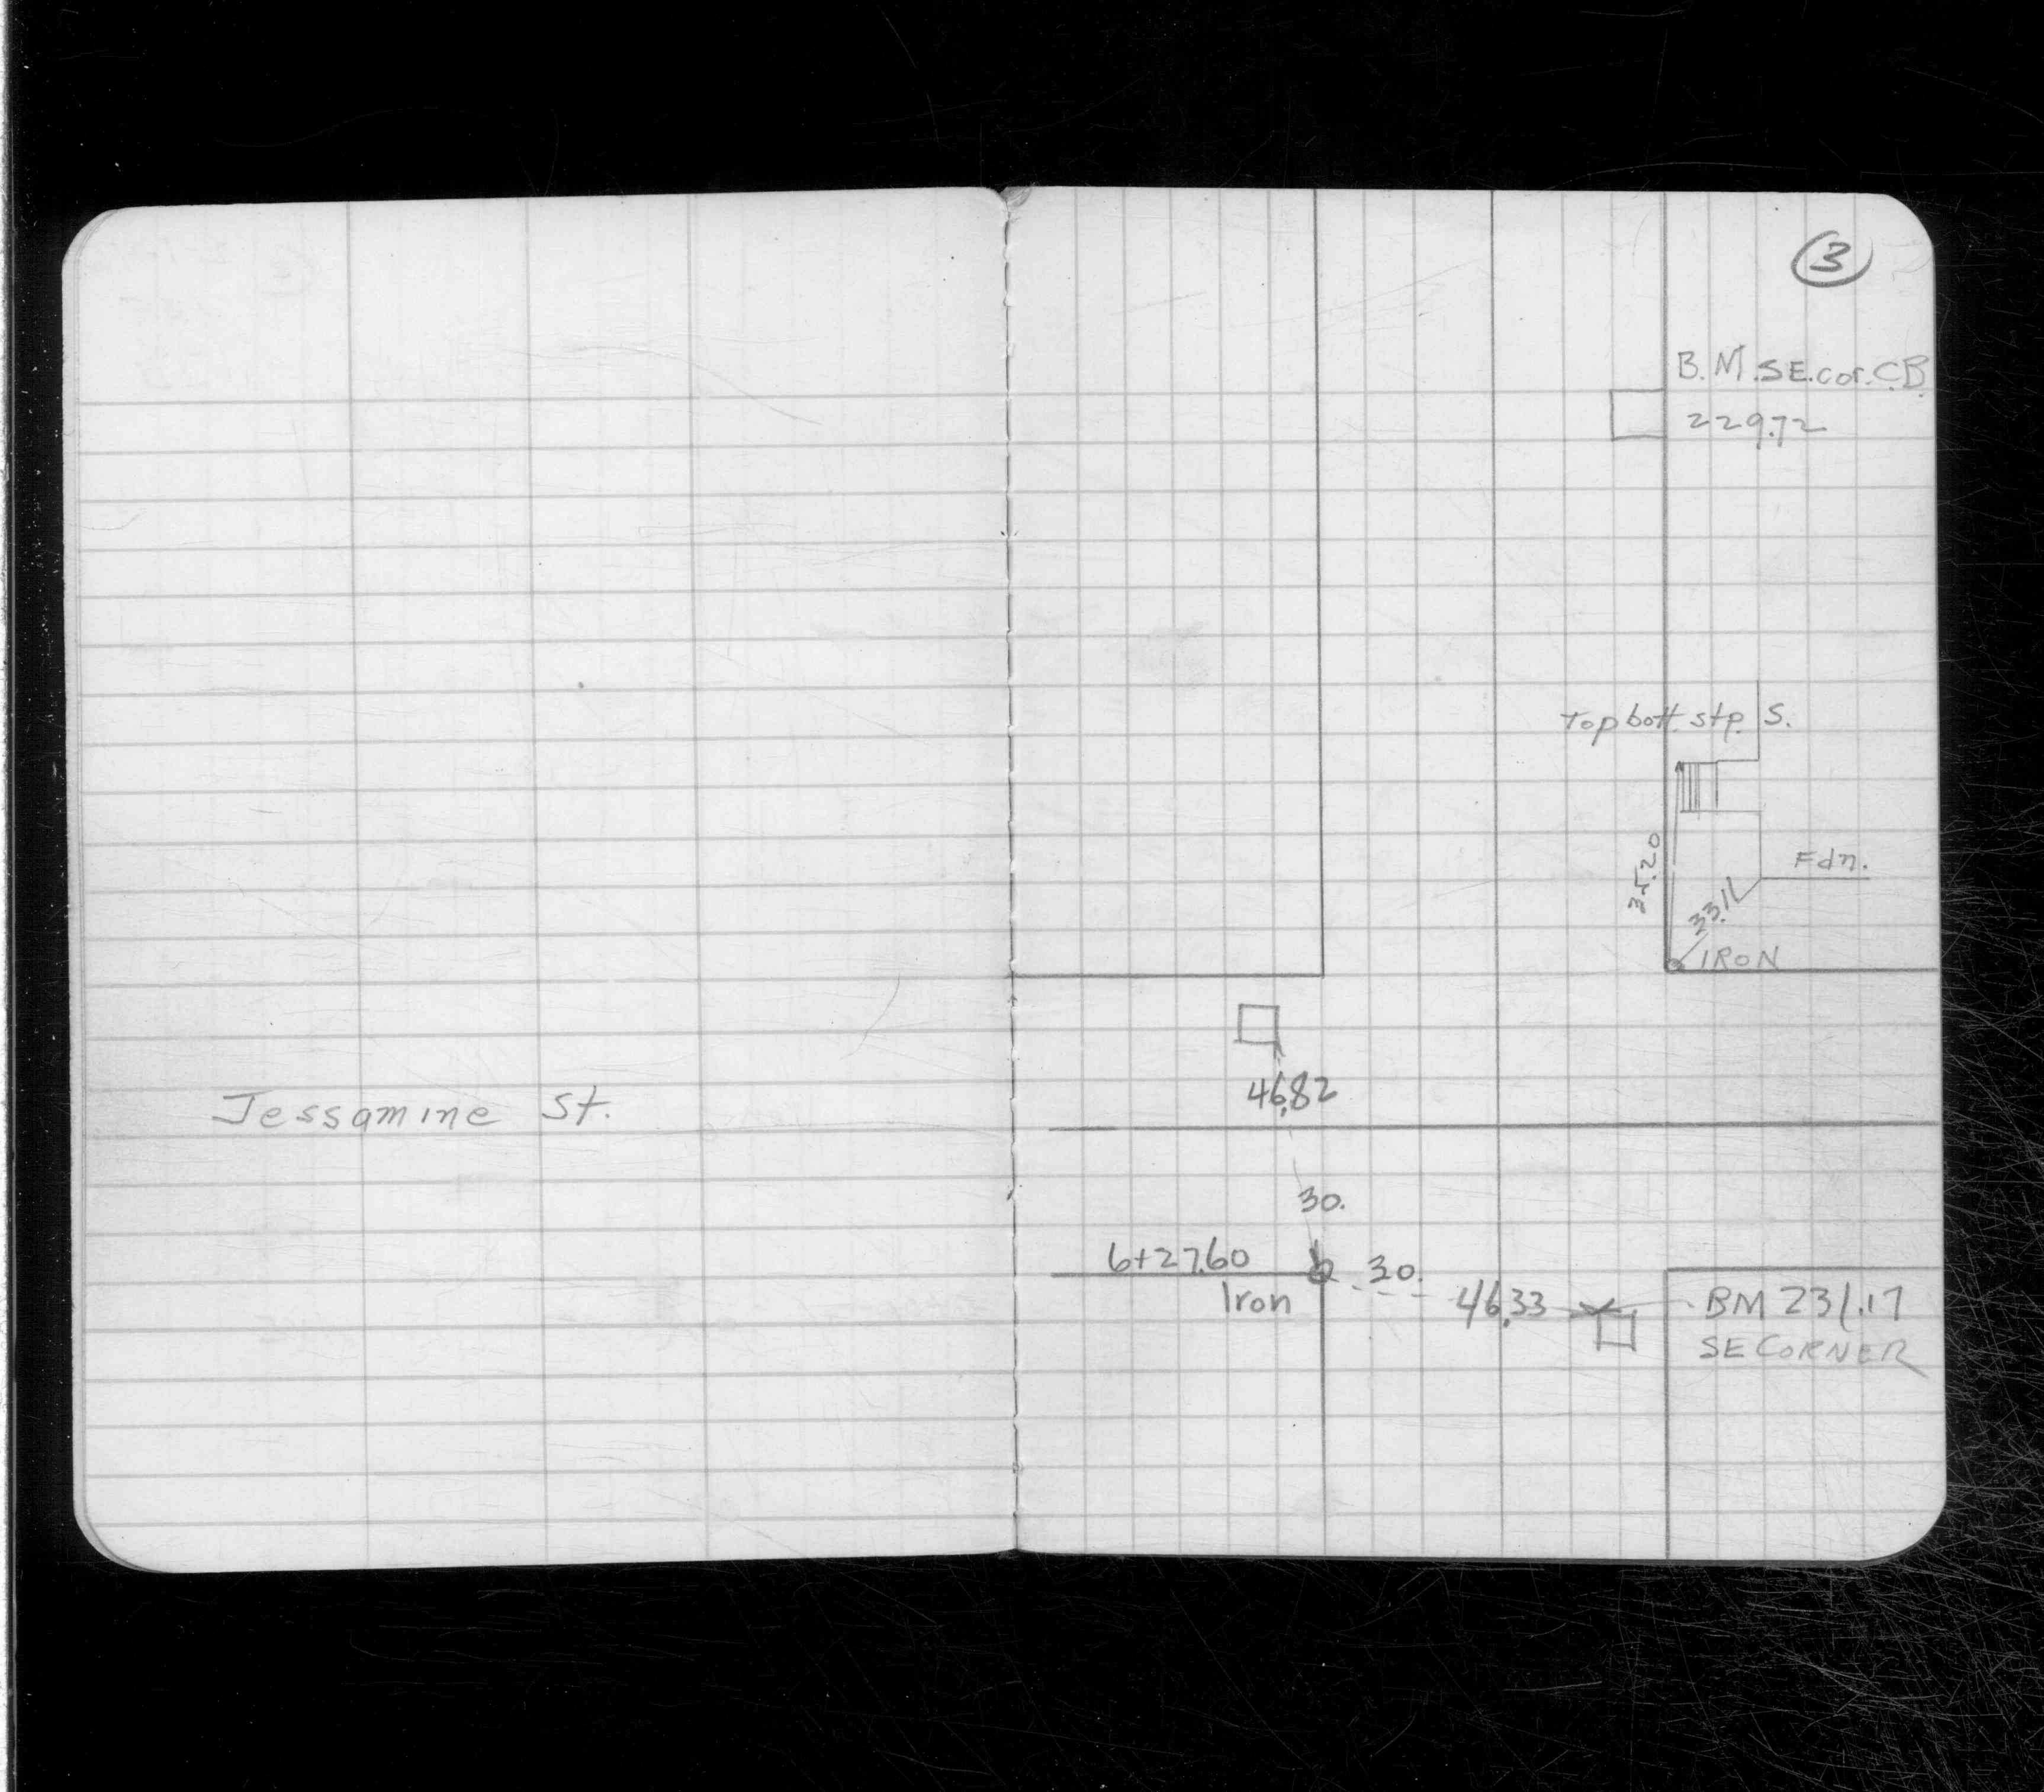 Jessamine St.
3
B.M. SE. cor. C.B.
229.72
Top bott. stp. S.
35.20
Fdn.
IRON
46.82
30.
6+27.60
30.
Iron
46.33
BM 231.17
SE CORNER